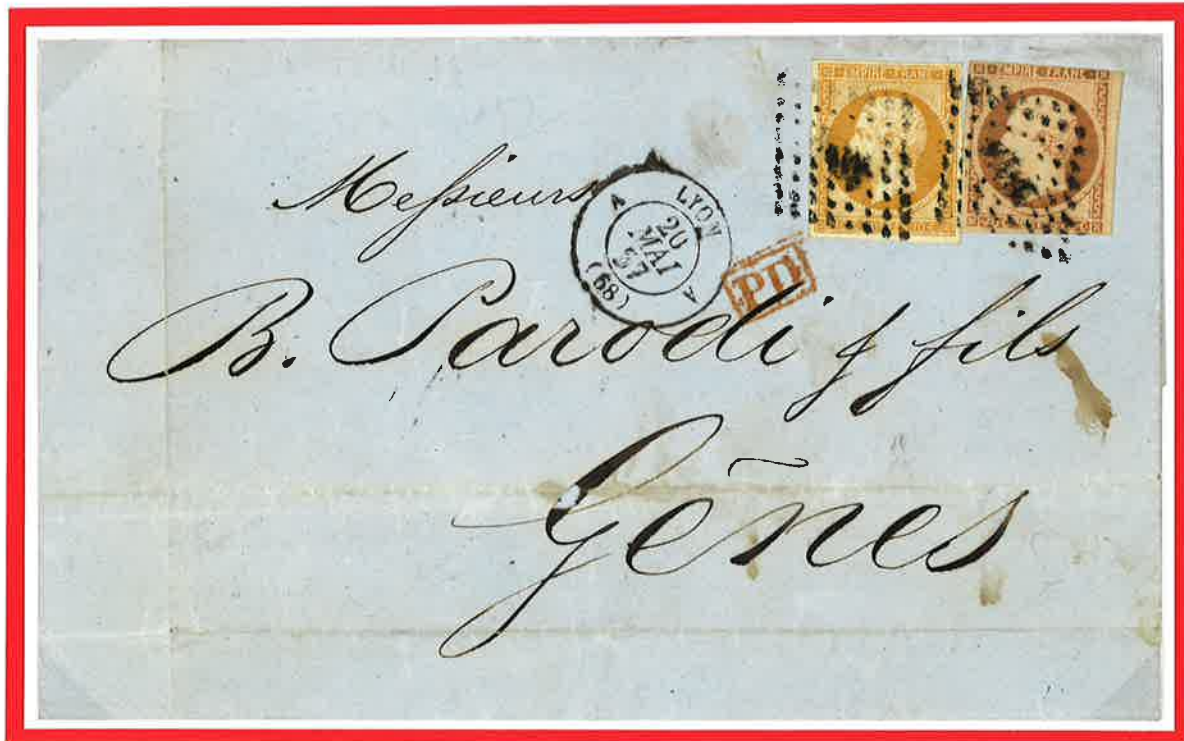 EMPIRE FRANC
EMPIRE FRANC
Messieurs
A LYON A
20
MAI
57
(68)
PD
B. Parodi & fils
Gênes